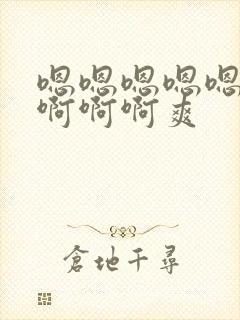 嗯嗯嗯嗯嗯
啊啊啊爽
倉地千尋